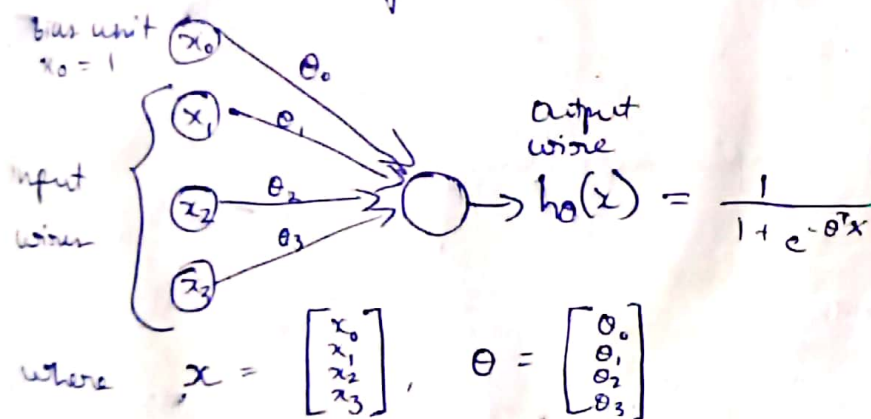 bias unit
x₀ = 1
x₀
θ₀
x₁
θ₁
input
wires
x₂
θ₂
x₃
θ₃
output
wire
h_θ(x) = 1 / (1 + e^(-θᵀx))
where x = [x₀ x₁ x₂ x₃], θ = [θ₀ θ₁ θ₂ θ₃]